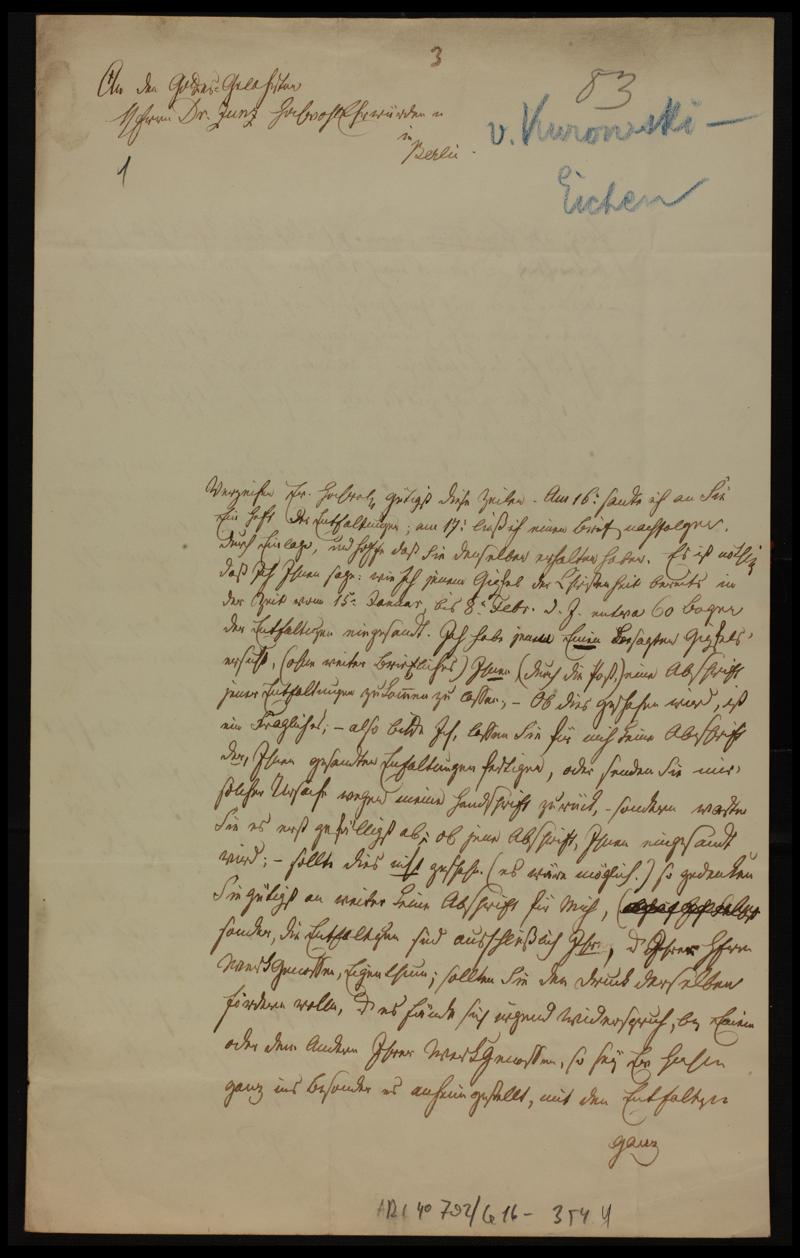 3
An den Gottes-Gelehrten
Herrn Dr. Zunz Hochwohlehrwürden
in
Berlin.
83
v. Kurowski-
Eichen
1
Verzeihen Ew. Hochw. gütigst diese Zeilen. Am 16: sandte ich an Sie
Ein Heft der Entfaltungen; am 17: ließ ich einen Brief nachfolgen.
durch Einlage, und hoffe daß Sie denselben erhalten haben. Es ist nöthig
daß Ich Ihnen sage: wie Ich jenem Gipfel der Christenheit bereits in
der Zeit vom 15: Januar, bis 8: Febr. d. J. entwa 60 bogen
der Entfaltungen eingesandt. Ich habe jenen Einen besagten Gipfels
ersucht, (ohne weiter briefliches) Ihnen (durch die Post,) eine Abschrift
jener Entfaltungen zukommen zu lassen, - Ob dies geschehen wird, ist
ein Fragliches; - also bitte Ich, lassen Sie für mich keine Abschrift
der, Ihnen gesandten Entfaltungen fertigen, oder senden Sie mir,
solcher Ursach wegen meine Handschrift zurück, - sondern warten
Sie es erst gefälligst ab: ob jene Abschrift, Ihnen eingesandt
wird; - sollte dies nicht geschehn. (es wäre möglich.) so gedenken
Sie gütigst an weiter keine Abschrift für Mich,
sondern, die Entfaltungen sind ausschließlich Ihr, u Ihrer Herrn
Werkgenossen, Eigenthum; sollten Sie den Druck derselben
fördern wollen, u es fände sich irgend Widerspruch, bey Einem
oder dem Andern Ihrer Werkgenossen, so sey
ganz ins besonder es anheim gestellt, mit den Entfaltgen
ganz
ARC 4o 792/G 16 - 354.4